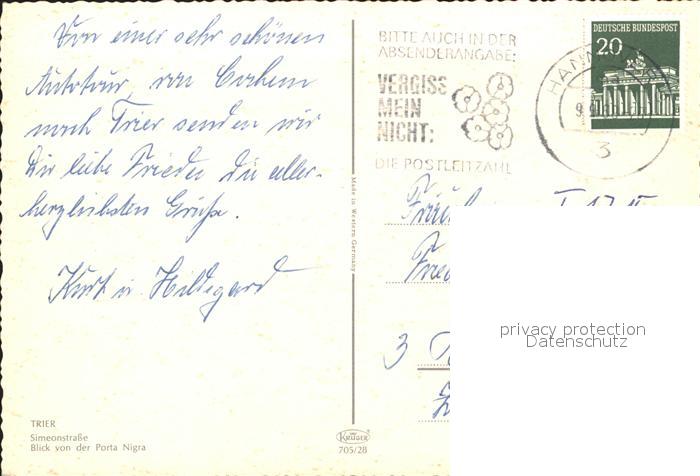 Von einer sehr schönen
Autotour, von Cochem
nach Trier senden wir
Dir liebe Frieda die aller-
herzlichsten Grüße.
Kurt u. Hildegard
TRIER
Simeonstraße
Blick von der Porta Nigra
Made in Western Germany
KRÜGER
705/28
BITTE AUCH IN DER
ABSENDERANGABE:
VERGISS
MEIN
NICHT:
DIE POSTLEITZAHL
HANN
3
DEUTSCHE BUNDESPOST
20
3
privacy protection
Datenschutz